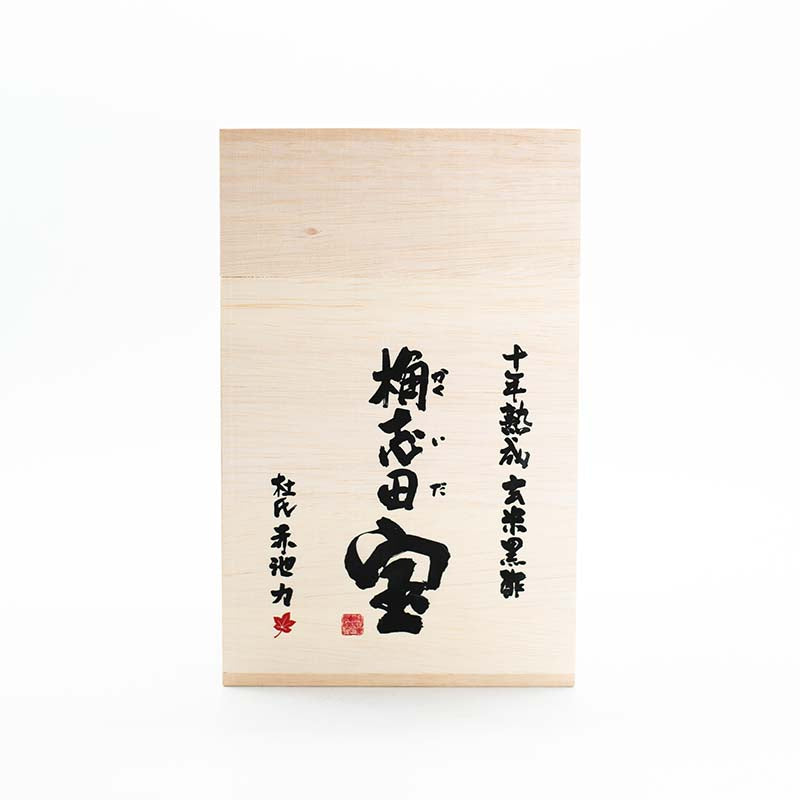 十年熟成 玄米黒酢
桷志田
かくいだ
宝
杜氏 赤池力